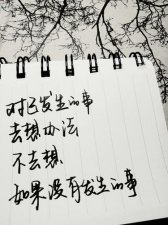 对已发生的事
去想办法
不去想
如果没有发生的事